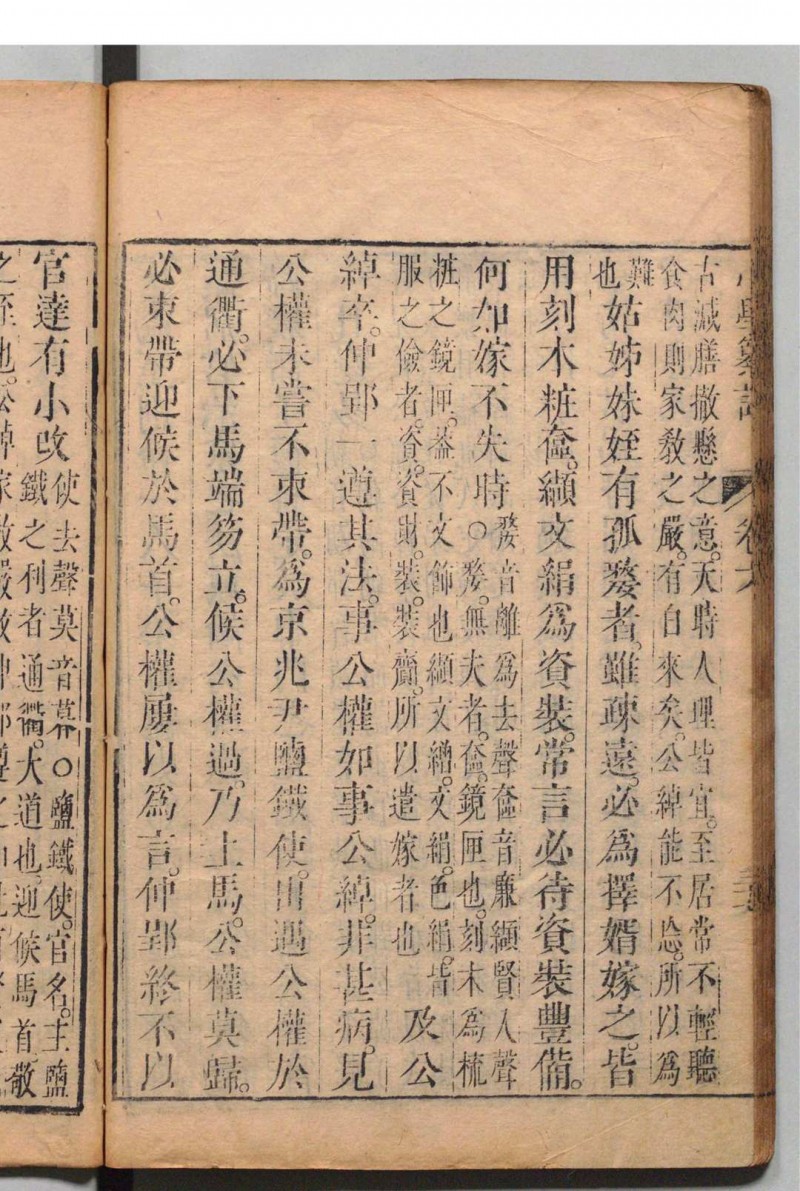 小學纂註 卷六
古減膳撤懸之意。天時人理皆宜。至居常不輕聽
食肉則家敎之嚴。有自來矣。公綽能不忘。所以爲
難也姑姊妹姪有孤嫠者。雖疎遠。必爲擇婿嫁之。皆
用刻木粧奩。纈文絹爲資裝。常言必待資裝豐備。
何如嫁不失時○嫠音離爲去聲奩音廉纈賢人聲
嫠。無夫者。奩。鏡匣也。刻木爲梳
粧之鏡匣。葢不文飾也纈文繒。文絹。色絹。皆
服之儉者。資。資財。裝。裝齎。所以遣嫁者也及公
綽卒。仲郢一遵其法。事公權如事公綽。非甚病。見
公權未嘗不束帶。爲京兆尹鹽鐵使。出遇公權於
通衢。必下馬端笏立。候公權過。乃上馬。公權莫歸。
必束帶迎候於馬首。公權屢以爲言。仲郢終不以
官達有小改使去聲莫音暮○鹽鐵使。官名。主鹽
鐵之利者通衢。大道也。迎候馬首敬
之至也。公綽家